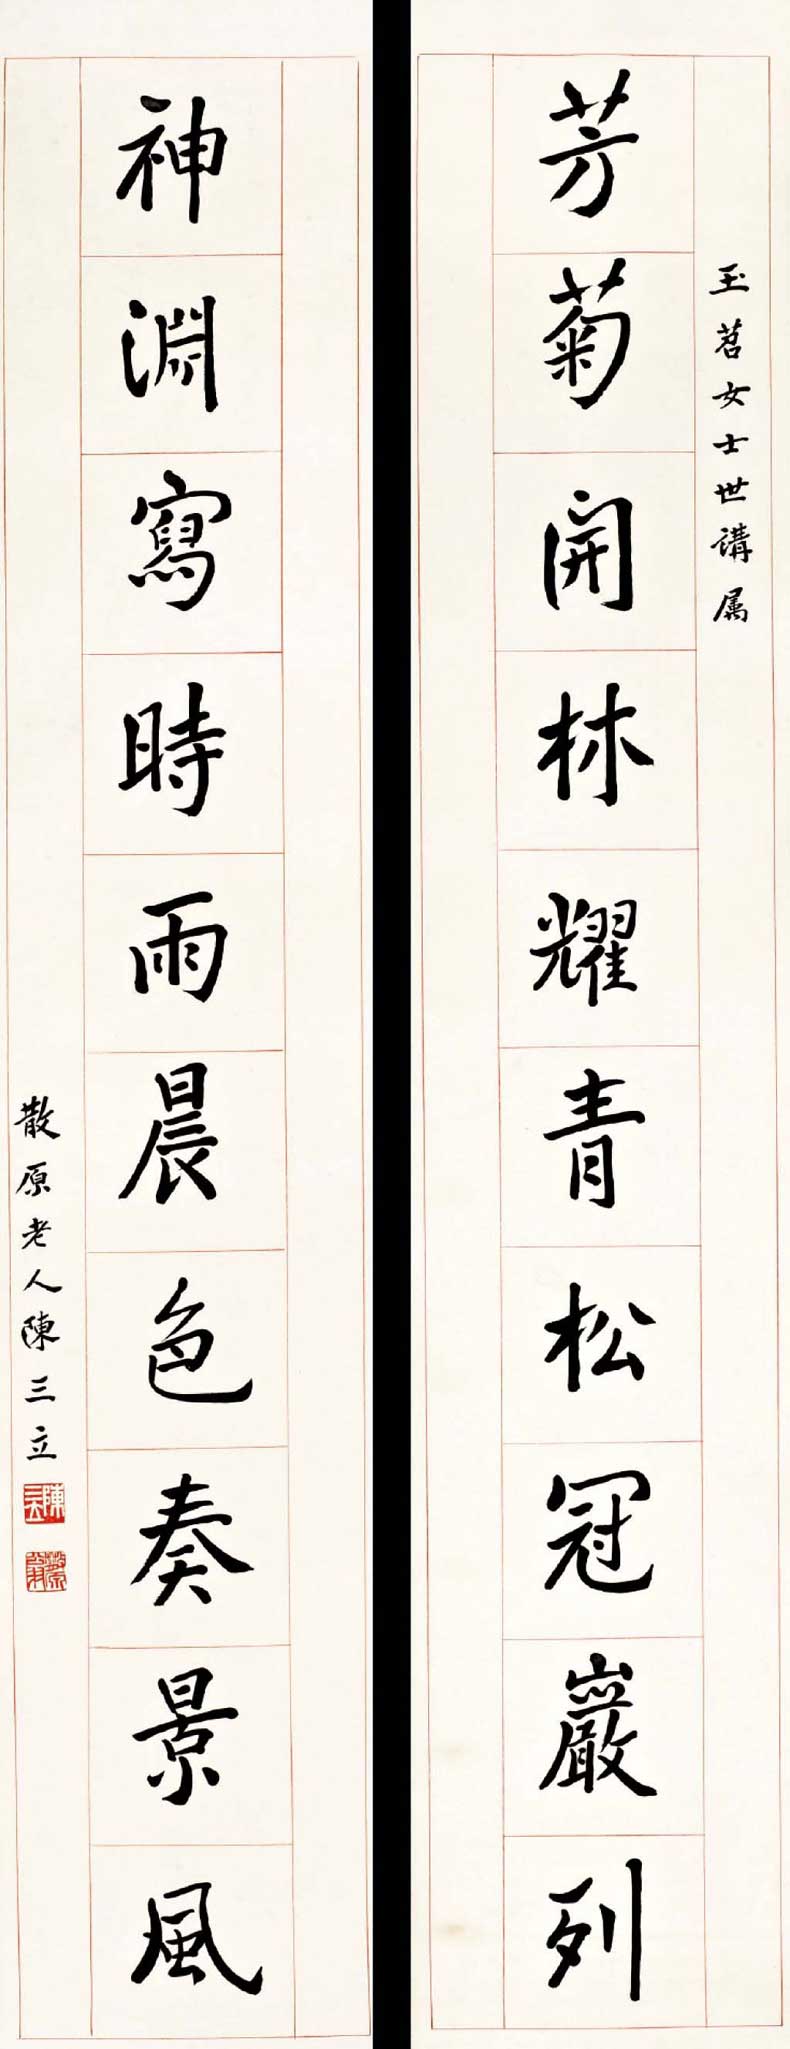 玉茗女士世講属
芳菊開林耀青松冠巖列
神淵寫時雨晨色奏景風
散原老人陳三立
陳三立
散原